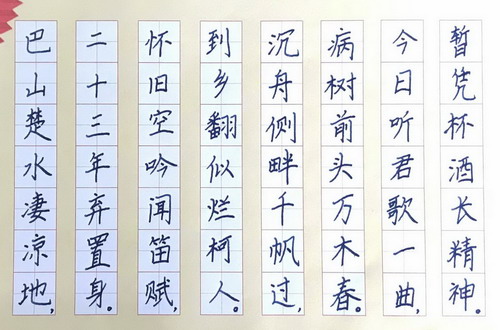 巴山楚水凄凉地，
二十三年弃置身。
怀旧空吟闻笛赋，
到乡翻似烂柯人。
沉舟侧畔千帆过，
病树前头万木春。
今日听君歌一曲，
暂凭杯酒长精神。